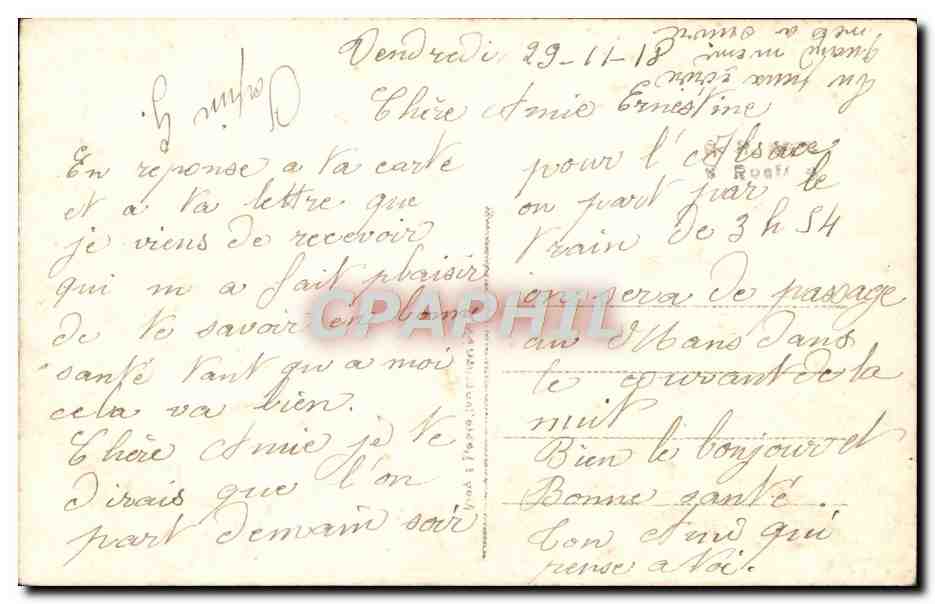 Vendredi 29-11-18
Chère Amie Ernestine
En reponse a ta carte
et a ta lettre que
je viens de recevoir
qui m a fait plaisir
de te savoir en bonne
santé tant qu a moi
cela va bien.
Chère Amie je te
dirais que l'on
part demain soir
pour l'Alsace
on part par le
train de 3 h 54
on sera de passage
au Mans dans
le courant de la
nuit
Bien le bonjour et
Bonne santé.
Ton Ami qui
pense a toi.
quand meme
CPAPHIL